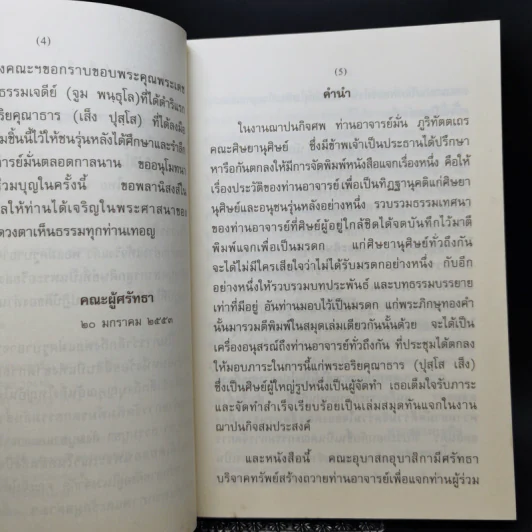 (4)
งคณะฯขอกราบขอบพระคุณพระเดช
ธรรมเจดีย์ (จูม พนฺธุโล)ที่ได้ดำริแรก
ริยคุณาธาร (เส็ง ปุสฺโส) ที่ได้ลงมือ
มชิ้นนี้ไว้ให้ชนรุ่นหลังได้ศึกษาและรำลึก
ารย์มั่นตลอดกาลนาน ขออนุโมทนา
ร่วมบุญในครั้งนี้ ขอพลานิสงส์ใน
ลให้ท่านได้เจริญในพระศาสนาของ
ดวงตาเห็นธรรมทุกท่านเทอญ
คณะผู้ศรัทธา
๒๐ มกราคม ๒๕๕๓
(5)
คำนำ
ในงานฌาปนกิจศพ ท่านอาจารย์มั่น ภูริทัตตเถร
คณะศิษยานุศิษย์ ซึ่งมีข้าพเจ้าเป็นประธานได้ปรึกษา
หารือกันตกลงให้มีการจัดพิมพ์หนังสือแจกเรื่องหนึ่ง คือให้
เรื่องประวัติของท่านอาจารย์ เพื่อเป็นทิฏฐานุคติแก่ศิษยา
นุศิษย์และอนุชนรุ่นหลังอย่างหนึ่ง รวบรวมธรรมเทศนา
ของท่านอาจารย์ที่ศิษย์ผู้อยู่ใกล้ชิดได้จดบันทึกไว้มาตี
พิมพ์แจกเพื่อเป็นมรดก แก่ศิษยานุศิษย์ทั่วถึงกัน
จะได้ไม่มีใครเสียใจว่าไม่ได้รับมรดกอย่างหนึ่ง กับอีก
อย่างหนึ่งให้รวบรวมบทประพันธ์ และบทธรรมบรรยาย
เท่าที่มีอยู่ อันท่านมอบไว้เป็นมรดก แก่พระภิกษุทองคำ
นั้นมารวมตีพิมพ์ในสมุดเล่มเดียวกันนั้นด้วย จะได้เป็น
เครื่องอนุสรณ์ถึงท่านอาจารย์ทั่วถึงกัน ที่ประชุมได้ตกลง
ให้มอบภาระในการนี้แก่พระอริยคุณาธาร (ปุสฺโส เส็ง)
ซึ่งเป็นศิษย์ผู้ใหญ่รูปหนึ่งเป็นผู้จัดทำ เธอเต็มใจรับภาระ
และจัดทำสำเร็จเรียบร้อยเป็นเล่มสมุดทันแจกในงาน
ฌาปนกิจสมประสงค์
และหนังสือนี้ คณะอุบาสกอุบาสิกามีศรัทธา
บริจาคทรัพย์สร้างถวายท่านอาจารย์เพื่อแจกท่านผู้ร่วม